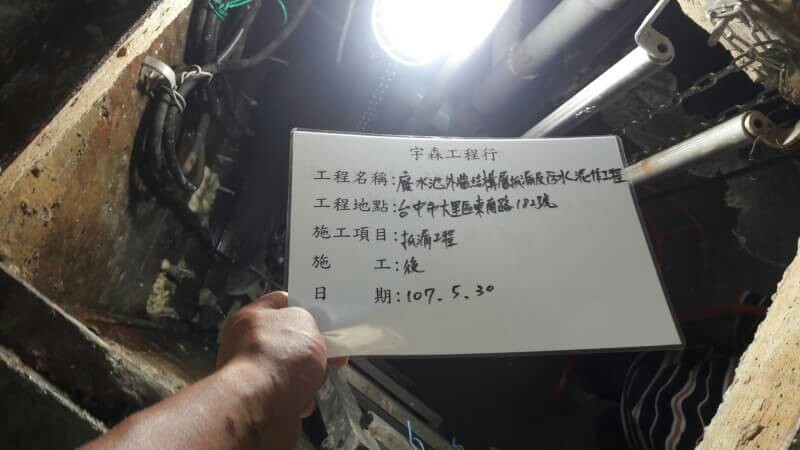 宇森工程行
工程名稱:廢水池外牆結構層抓漏及防水泥作工程
工程地點:台中市大里區東南路182號
施工項目:抓漏工程
施 工:後
日 期:107.5.30